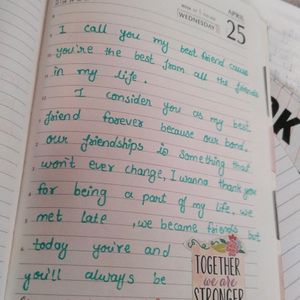 APRIL
WEDNESDAY
25
I call you my best friend cause
you're the best from all the friends
in my life.
I consider you as my best
friend forever because our bond,
our friendships is something that
won't ever change, I wanna thank you
for being a part of my life, we
met late, we became friends but
today you're and
you'll always be
TOGETHER
we are
STRONGER